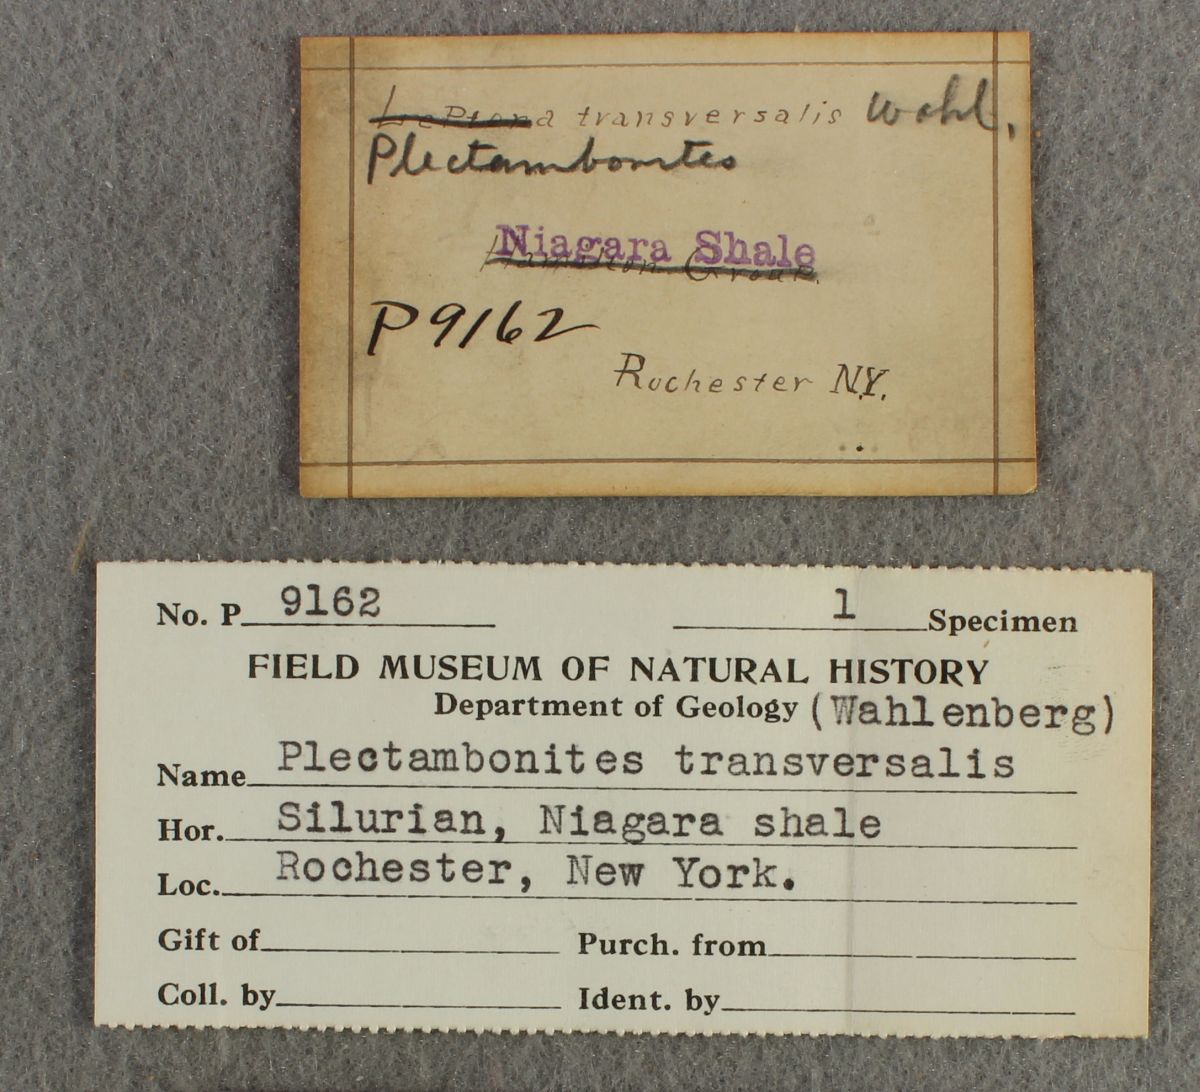 Leptena transversalis Wahl.
Plectambonites
Niagara Shale
Hamilton Group.
P9162
Rochester N.Y.
No. P 9162 1 Specimen
FIELD MUSEUM OF NATURAL HISTORY
Department of Geology (Wahlenberg)
Name Plectambonites transversalis
Hor. Silurian, Niagara shale
Loc. Rochester, New York.
Gift of Purch. from
Coll. by Ident. by